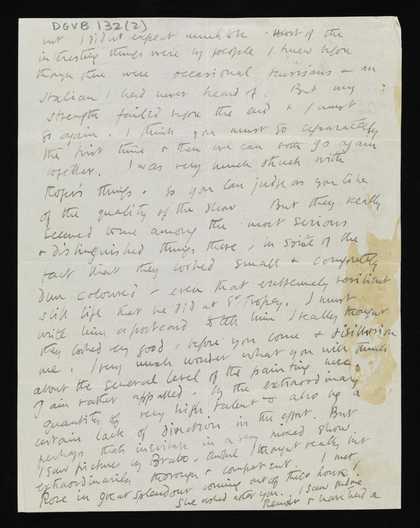 DGVB 132(2)
but I didn't expect much else. Most of the
interesting things were by people I knew before
though there were occasional Russians & an
Italian I had never heard of. But my
strength failed before the end & I must
go again. I think you must go separately
the first time & then we can both go again
together. I was very much struck with
Roger's things. So you can judge as you like
of the quality of the show. But they really
seemed some among the most serious
& distinguished things there, in spite of the
fact that they looked small & completely
dun coloured – even that extremely
still life that he did at St Tropez. I must
write him a postcard & tell him I really thought
they looked very good, before you come & disillusion
me. I very much wonder what you will think
about the general level of the painting here.
I am rather appalled by the extraordinary
quantity of very high talent & also by a
certain lack of direction in the effort. But
perhaps that's inevitable in a very mixed show
I saw pictures by I thought really but
extraordinarily thorough & competent. I met
Rose in great splendour coming out of the house.
She asked after you. I saw
Renoir & have had a